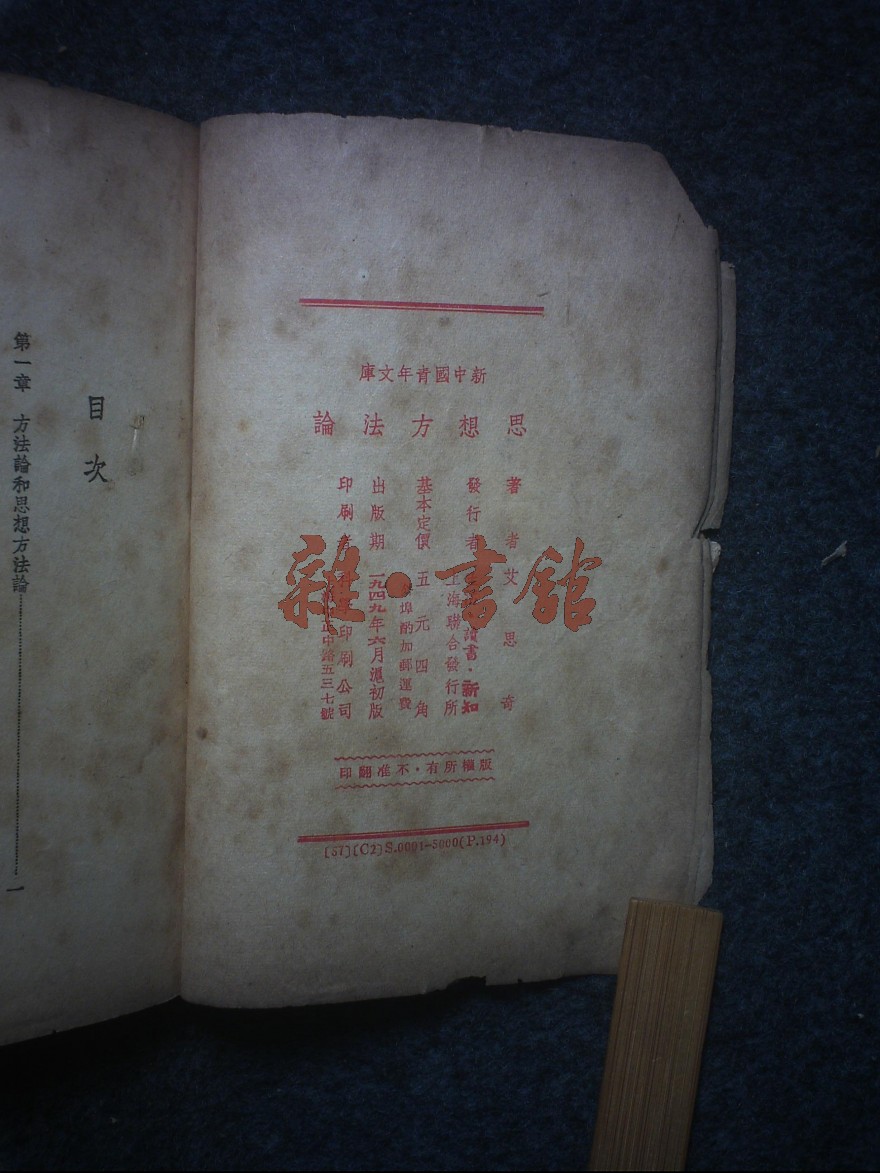 新中國青年文庫
思想方法論
著者 艾思奇
發行者 讀書·新知
上海聯合發行所
基本定價 五元四角
埠酌加郵運費
出版期 一九四九年六月滬初版
印刷者 印刷公司
正中路五三七號
版權所有·不准翻印
[57][C2]S.0001—5000(P.194)
目次
第一章 方法論和思想方法論 一
雜·書館